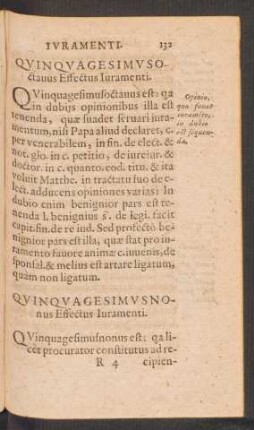 IVRAMENTI. 132
QVINQVAGESIMVSO-
ctauus Effectus Iuramenti.
QVinquagesimusoctauus est: qa
in dubijs opinionibus illa est
tenenda, quæ suadet seruari iura-
mentum, nisi Papa aliud declaret, c.
per venerabilem, in fin. de elect. &
not. glo. in c. petitio, de iureiur. &
doctor. in c. quanto. eod. titu. & ita
voluit Matthe. in tractatu suo de e-
lect. adducens opiniones varias: In
dubio enim benignior pars est te-
nenda l. benignius ff. de legi. facit
cupit. fin. de re iud. Sed profectò be-
nignior pars est illa, quæ stat pro iu-
ramento fauore animæ c. iuuenis, de
sponsal. & melius est artare ligatum,
quàm non ligatum.
Opinio,
quæ fauet
iuramẽto,
in dubio
est sequen-
da.
QVINQVAGESIMVSNO-
nus Effectus Iuramenti.
QVinquagesimusnonus est: qa li-
cèt procurator constitutus ad re-
R 4 cipien-